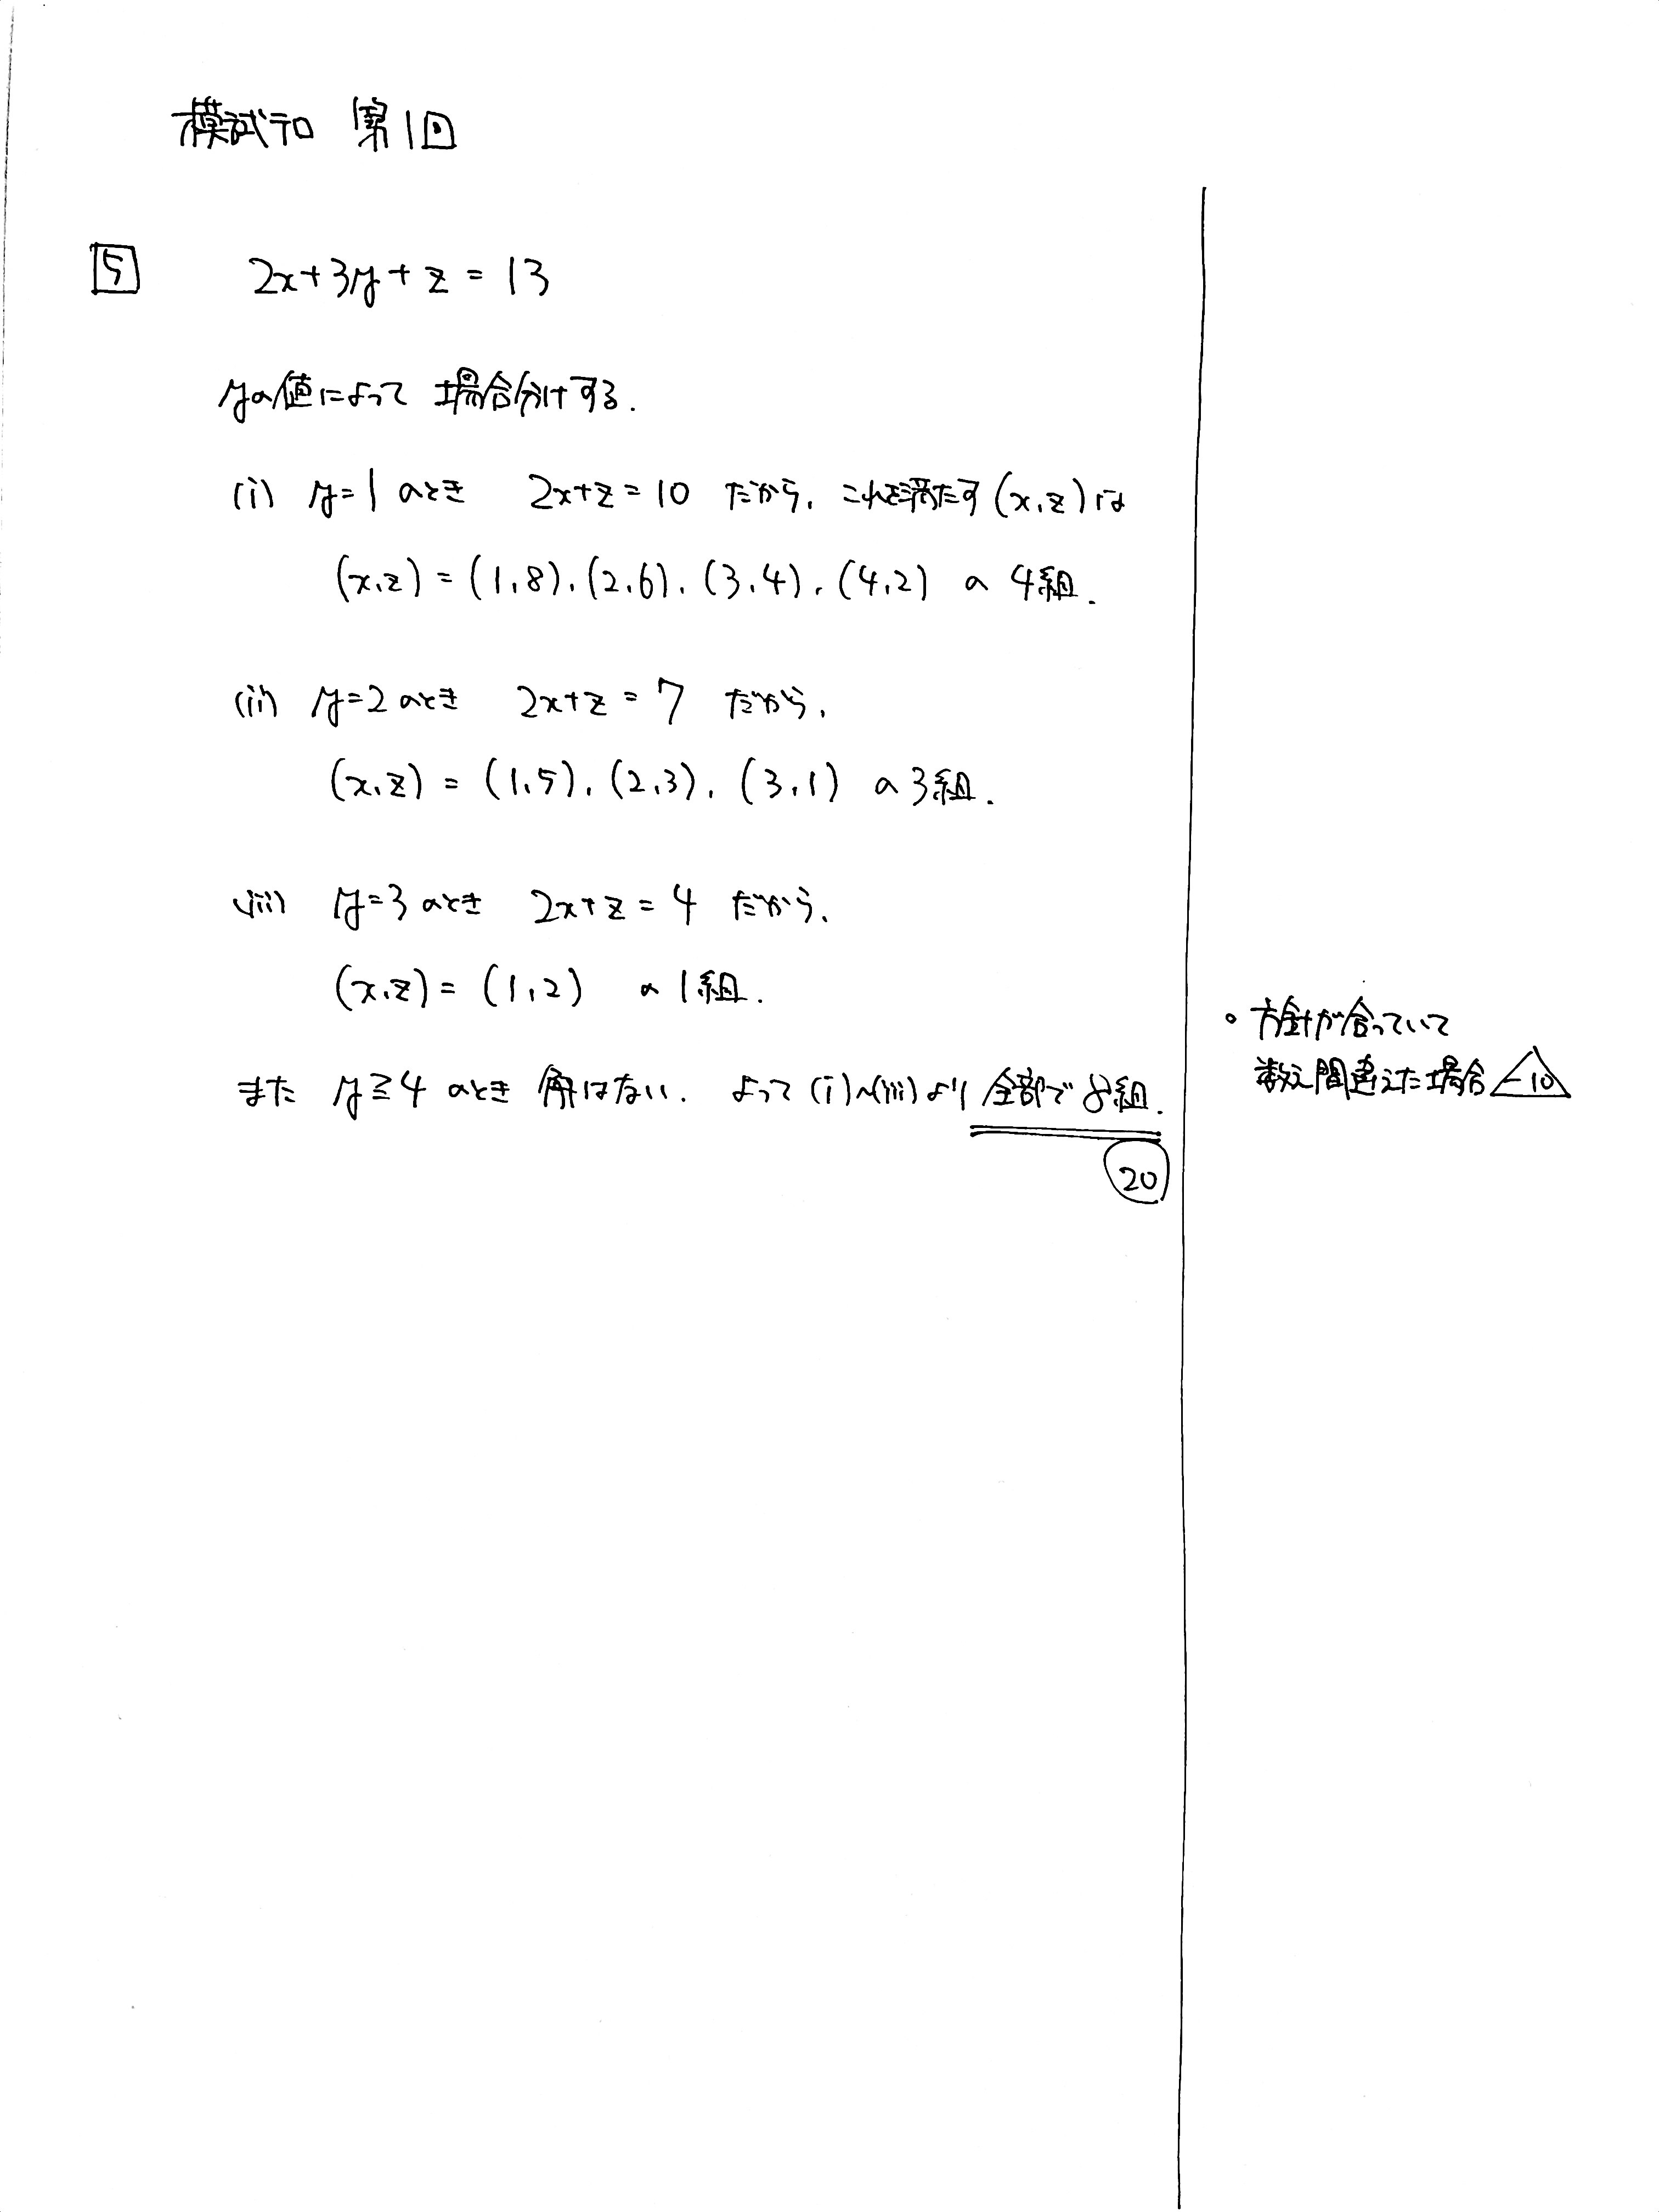 模試テロ 第1回
5 2x+3y+z=13
yの値によって場合分けする.
(i) y=1のとき 2x+z=10 だから, これを満たす(x,z)は
(x,z)=(1,8),(2,6),(3,4),(4,2) の 4組.
(ii) y=2のとき 2x+z=7 だから,
(x,z)=(1,5),(2,3),(3,1) の3組.
(iii) y=3のとき 2x+z=4 だから,
(x,z)=(1,2) の1組.
また y≧4 のとき 解はない. よって(i)~(iii)より 全部で8組.
20
○ 方針が合っていて
数え間違えた場合 -10